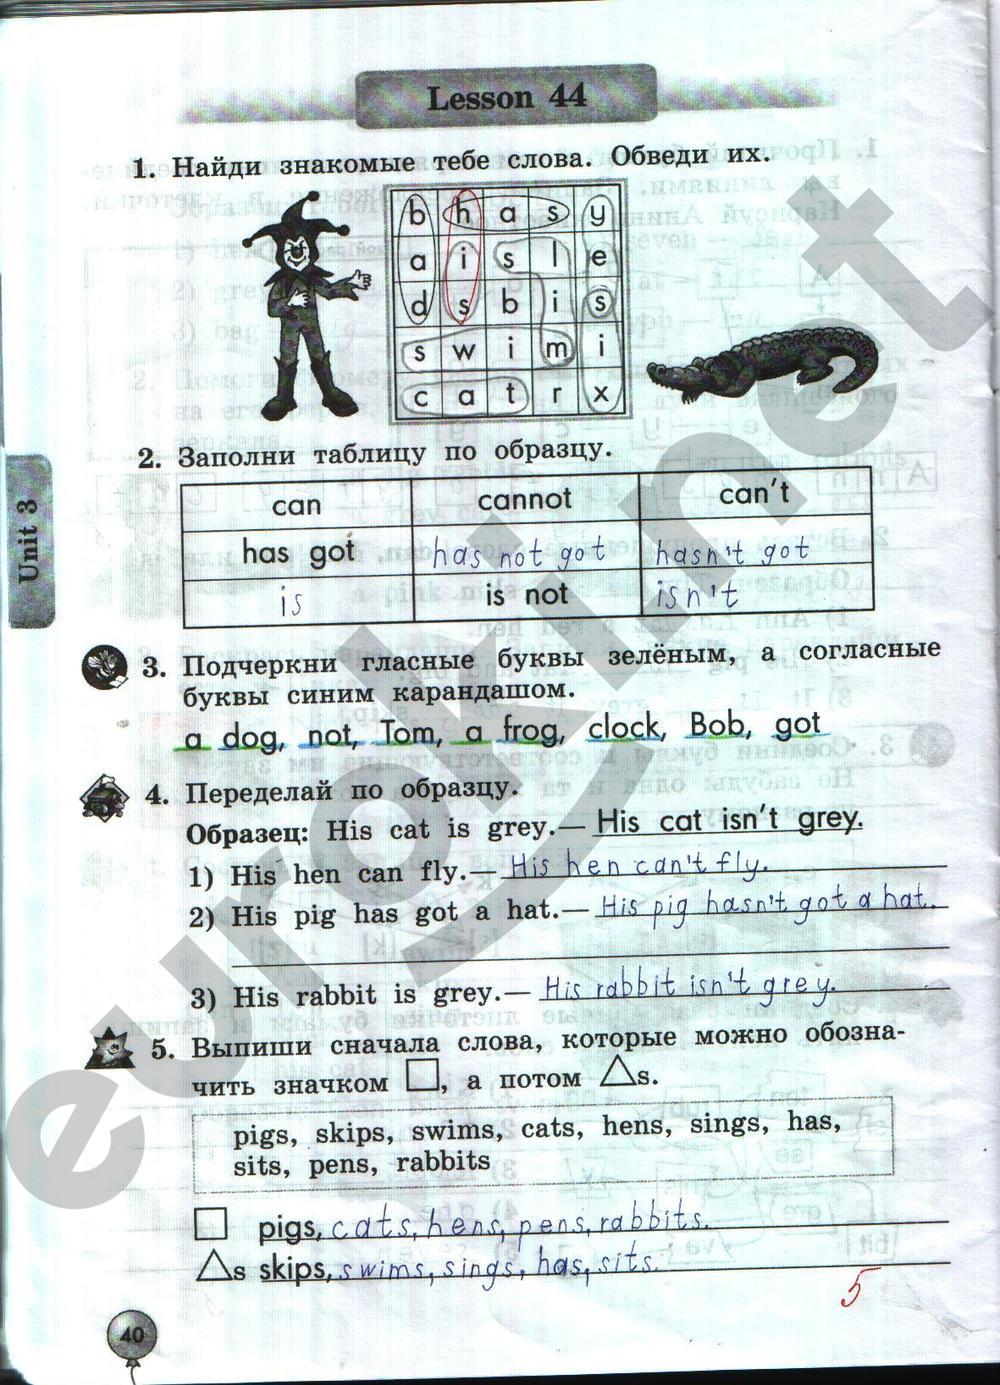 Lesson 44
1. Найди знакомые тебе слова. Обведи их.
b h a s y
a i s l e
d s b i s
s w i m i
c a t r x
2. Заполни таблицу по образцу.
can cannot can't
has got has not got hasn't got
is is not isn't
Unit 3
3. Подчеркни гласные буквы зелёным, а согласные
буквы синим карандашом.
a dog, not, Tom, a frog, clock, Bob, got
4. Переделай по образцу.
Образец: His cat is grey.— His cat isn't grey.
1) His hen can fly.— His hen can't fly.
2) His pig has got a hat.— His pig hasn't got a hat.
3) His rabbit is grey.— His rabbit isn't grey.
5. Выпиши сначала слова, которые можно обозна-
чить значком □, а потом △s.
pigs, skips, swims, cats, hens, sings, has,
sits, pens, rabbits
□ pigs, cats, hens, pens, rabbits.
△s skips, swims, sings, has, sits.
5
40
eurokinet